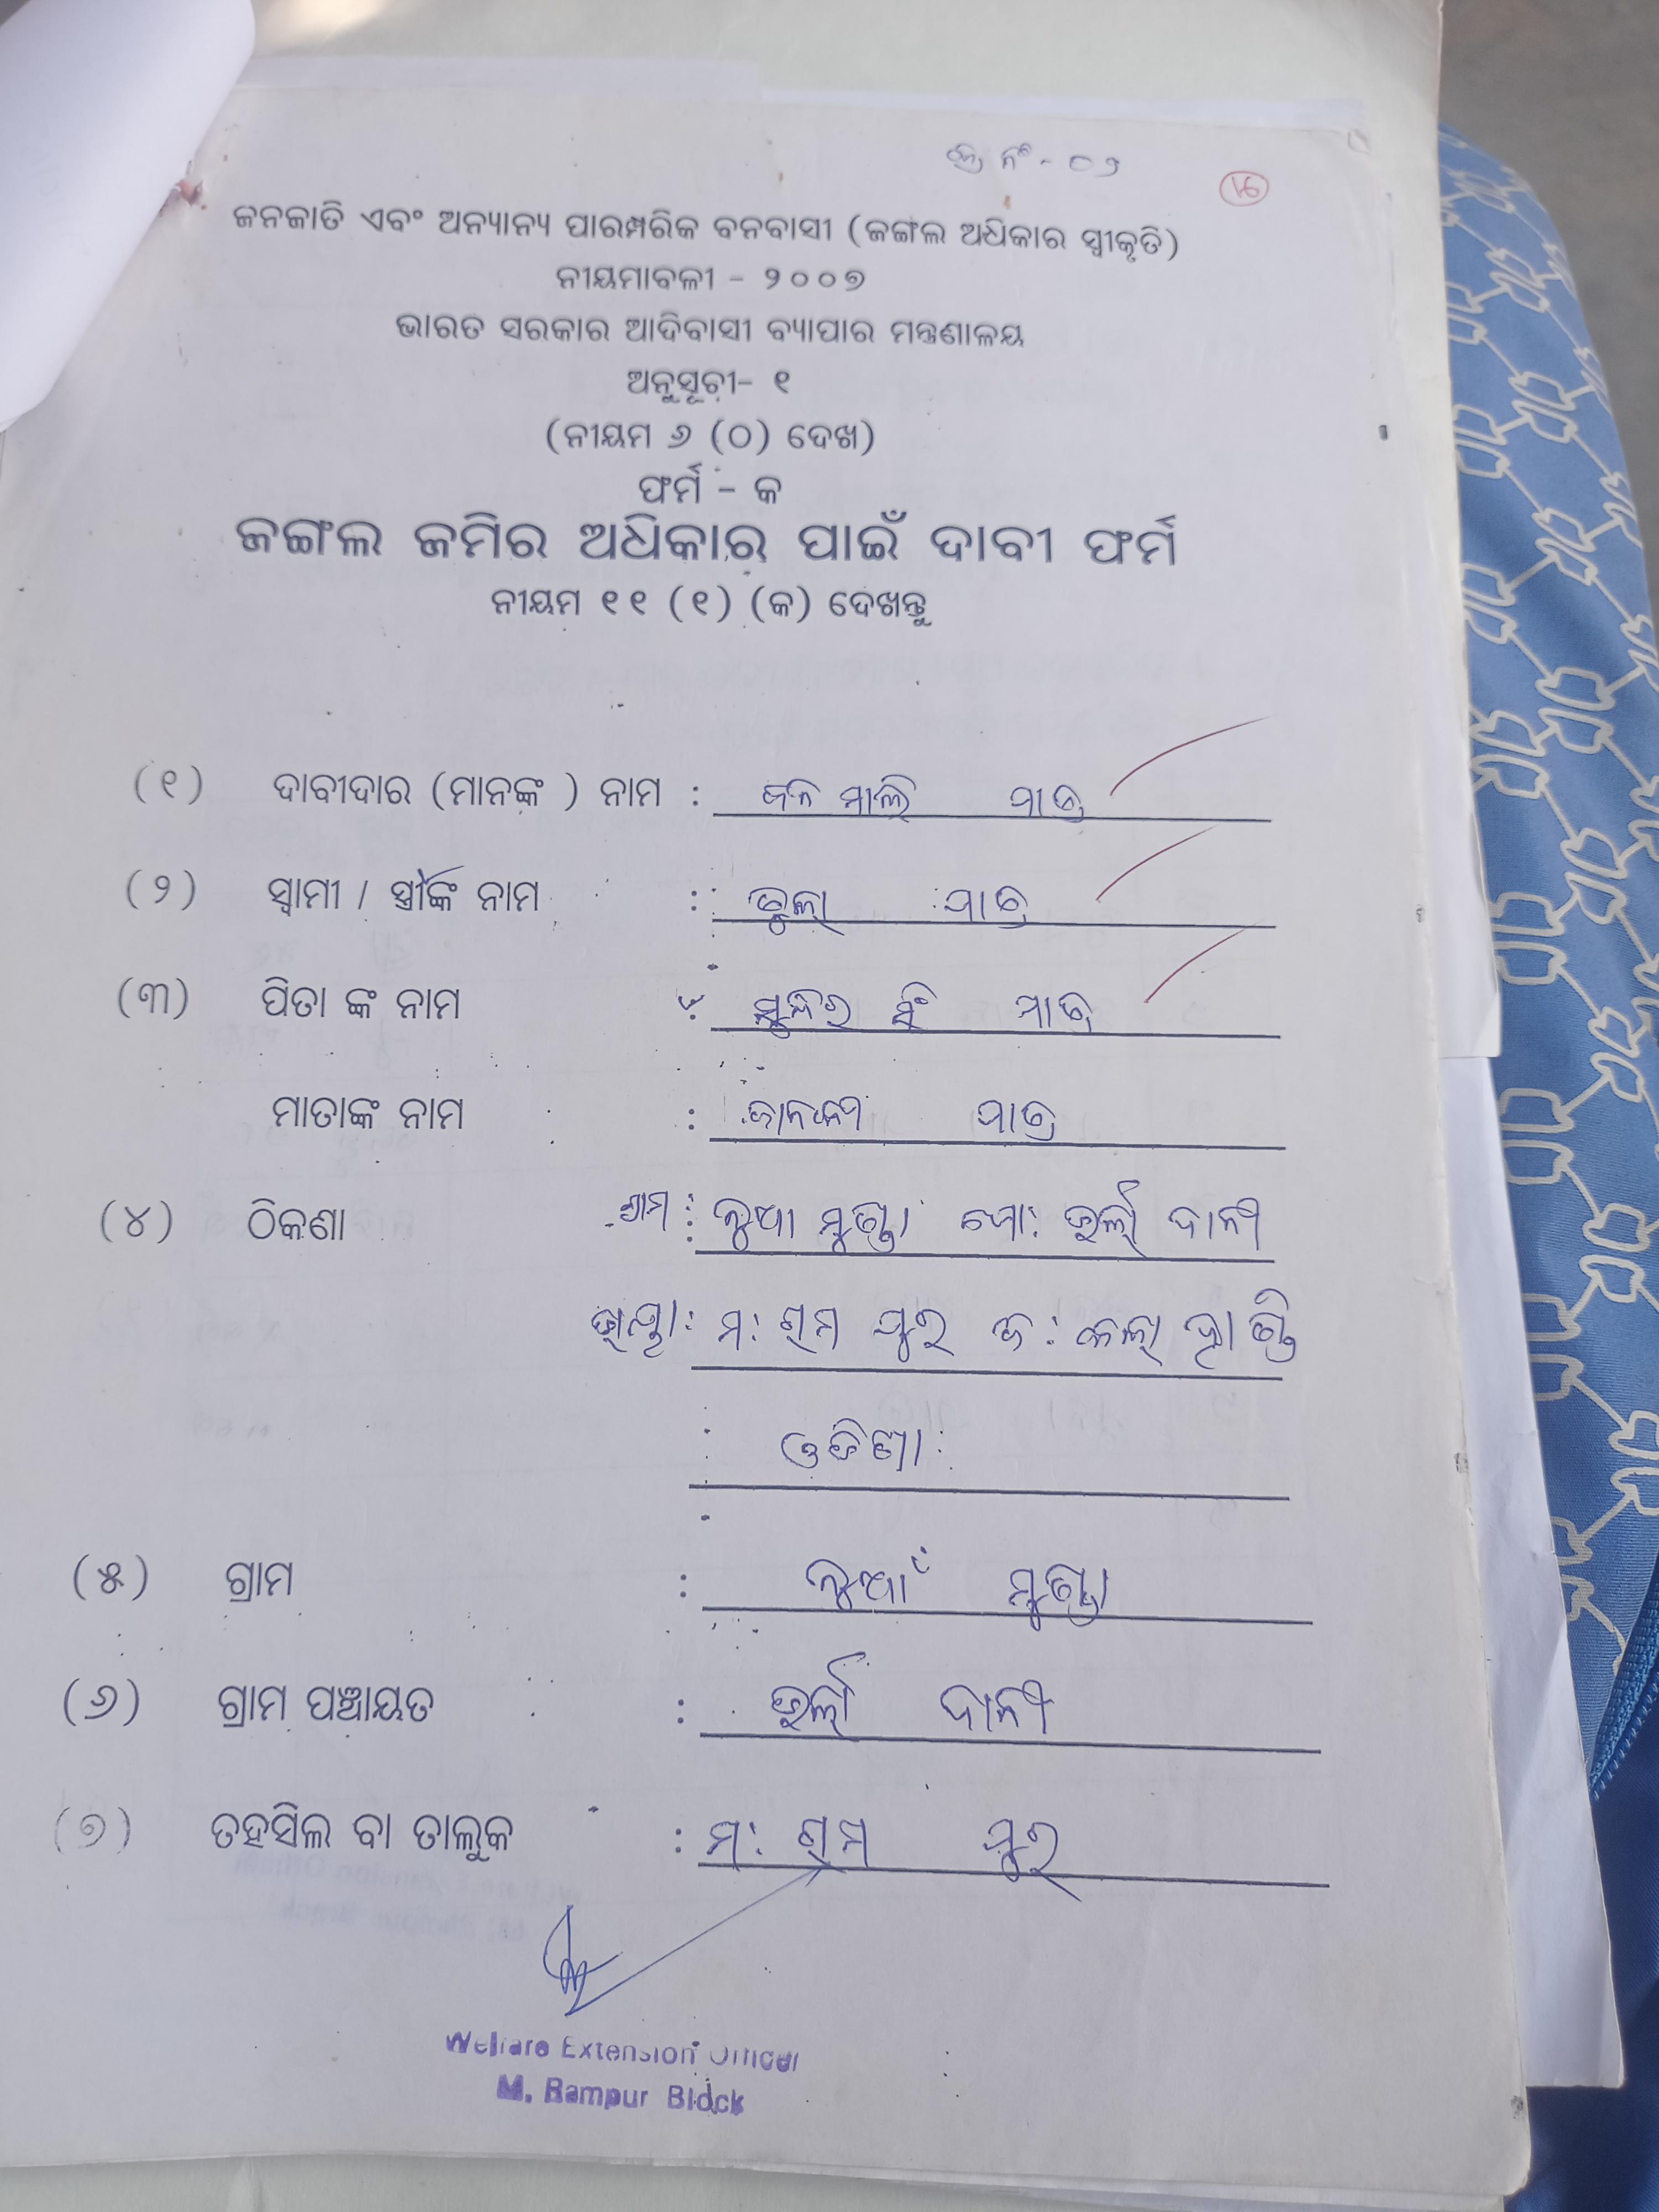 କ୍ର ନଂ - ୦୨
16
ଜନଜାତି ଏବଂ ଅନ୍ୟାନ୍ୟ ପାରମ୍ପରିକ ବନବାସୀ (ଜଙ୍ଗଲ ଅଧିକାର ସ୍ୱୀକୃତି)
ନୀୟମାବଳୀ - ୨୦୦୭
ଭାରତ ସରକାର ଆଦିବାସୀ ବ୍ୟାପାର ମନ୍ତ୍ରଣାଳୟ
ଅନୁସୂଚୀ- ୧
(ନୀୟମ ୬ (ଠ) ଦେଖ)
ଫର୍ମ - କ
ଜଙ୍ଗଲ ଜମିର ଅଧିକାର ପାଇଁ ଦାବୀ ଫର୍ମ
ନୀୟମ ୧୧ (୧) (କ) ଦେଖନ୍ତୁ
(୧) ଦାବୀଦାର (ମାନଙ୍କ ) ନାମ : ମାଲି ପାତ୍ର
(୨) ସ୍ୱାମୀ / ସ୍ତ୍ରୀଙ୍କ ନାମ : ତୁଲା ପାତ୍ର
(୩) ପିତା ଙ୍କ ନାମ : ସୁନ୍ଦର ସିଂ ପାତ୍ର
ମାତାଙ୍କ ନାମ : ଜାନକୀ ପାତ୍ର
(୪) ଠିକଣା ଗ୍ରାମ : ନୁଆ ମୁଣ୍ଡା ପୋ: ବାଲୀ
ମ: ରାମ ପୁର ଜ: କଲା ହାଣ୍ଡି
ଓଡିଶା
(୫) ଗ୍ରାମ : ନୁଆଁ ମୁଣ୍ଡା
(୬) ଗ୍ରାମ ପଞ୍ଚାୟତ :
(୭) ତହସିଲ ବା ତାଲୁକ : ମ: ରାମ ପୁର
Welfare Extension Officer
M. Rampur Block